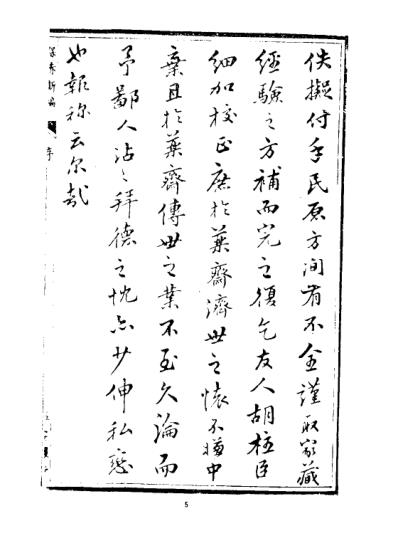 佚擬付手民原方间有不全謹取家藏
經驗之方補而完之復乞友人胡柱臣
細加校正庶於葉齋濟世之懷不
中
棄且於葉齋傳世之業不至久淪而
予鄙人沾之拜德之忱亦少伸私
也報称云尔哉
保赤新編
序
5